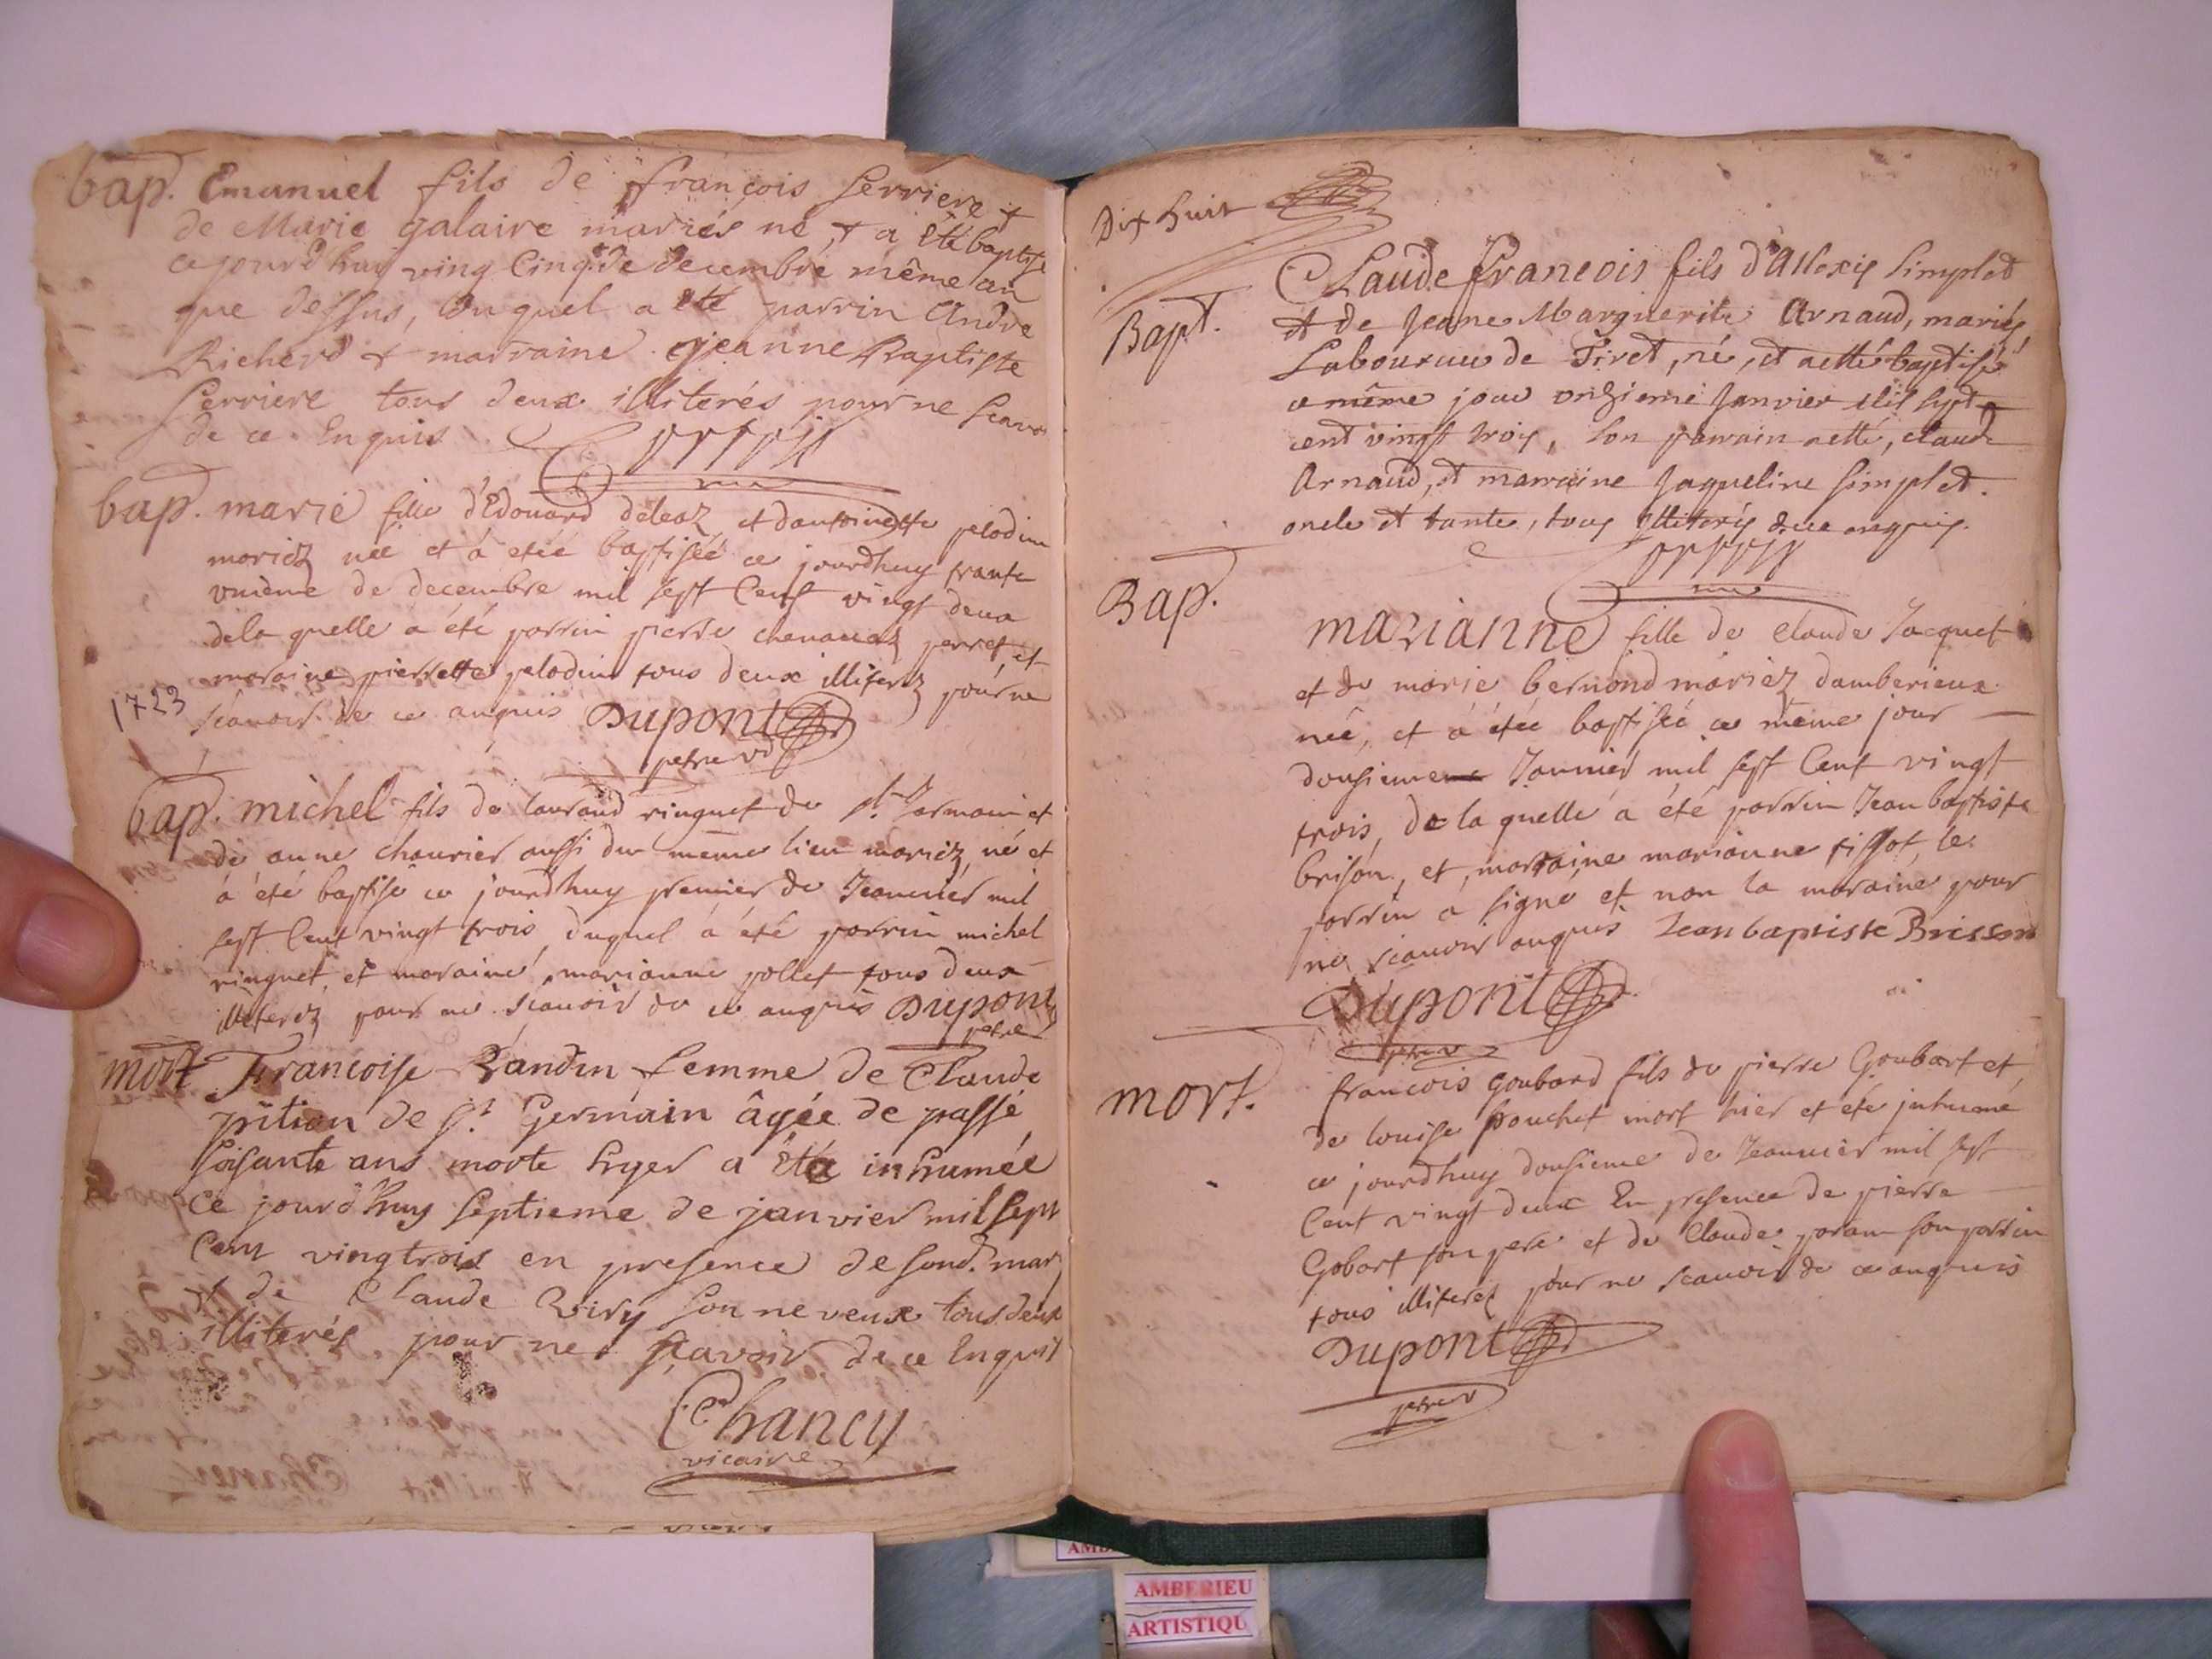 bap. Emanuel fils de françois serriere et
de Marie galaire mariés né, et a été baptisé
ce jourd'huy ving cinq de decembre même an
que dessus, duquel a été parrin Andre
Richerd et marraine jeanne Baptiste
serriere tous deux illiterés pour ne scavoir
de ce Enquis
bap. marie fille d'Edouard deleaz et dantoinette pelodin
mariez née et á etéé baptiséé ce jourdhuy trante
vnieme de decembre mil sept Cent vingt deux
dela quelle a été parrin pierre chenauaz perret et
maraine pierrette pelodin tous deux illiterez pour ne
1723
scauoir de ce anquis Dupont
petre vic
bap. michel fils de lauraud ringuet de st. Jarmain et
de anne chaurier aussi du même lieu mariez né et
á été baptisé ce jourdhuy premier de Jeanuier mil
sept Cent vingt trois duquel á été parrin michel
ringuet, et maraine marianne pollet tous deux
illiterez pour ne scauoir de ce anquis Dupont
petre
mort Francoise Bandin femme de Claude
pition de st. Germain âgée de passé
soisante ans morte hyer a été inhumée
Ce jourd'huy septieme de janvier mil sept
Cent vingtrois en presence de son d. mary
et de Claude Viry son neveux tous deux
illiterés pour ne scavoir de ce Enquis
Chancy
vicaire
Dix huit
Claude francois fils d'Allexis simplet
Bapt. et de Jeane Marguerite Arnaud, mariés
Laboureur de Tiret, né, et aetté baptisé
ce même jour onzieme Janvier Mil sept
cent vingt trois, son parrain aetté, claude
Arnaud, et marraine Jaqueline simplet.
oncle et tante, tous illiterés de ce enquis.
Bap. marianne fille de claude Jacquet
et de marie bernond mariez damberieux
née, et á étée baptiséé ce même jour
dousieme Januier mil sept Cent vingt
trois, de la quelle a été parrin Jean baptiste
brison, et, marraine marianne tissot, le
parrin a signe et non la maraine pour
ne scauoir anquis Jean baptiste Brisson
Dupont
petre v
mort. francois goubard fils de pierre Goubart et
de louise pouchet mort hier et été inhumé
ce jourdhuy dousieme de Jeanuier mil sept
Cent vingt deux En presence de pierre
Gobart son pere et de Claude param son parrin
tous illiterez pour ne scauoir de ce anquis
Dupont
petre v
AMBERIEU
ARTISTIQU